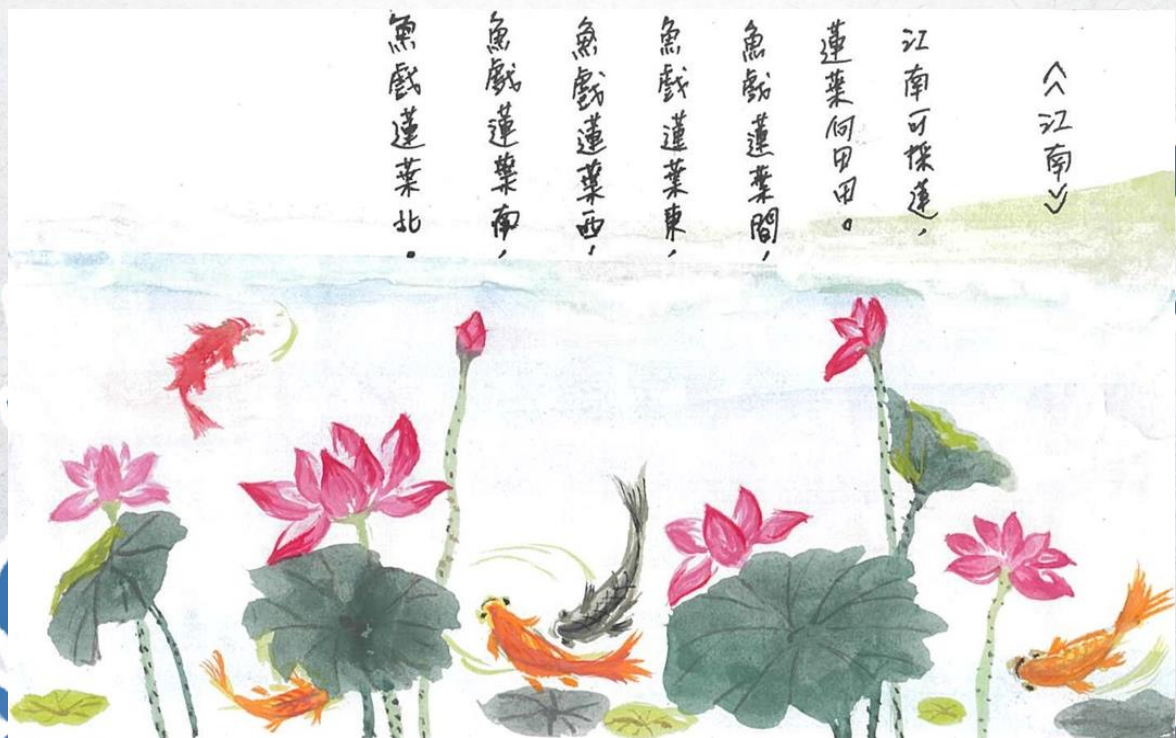 《江南》
江南可採蓮，
蓮葉何田田。
魚戲蓮葉間，
魚戲蓮葉東，
魚戲蓮葉西，
魚戲蓮葉南，
魚戲蓮葉北。